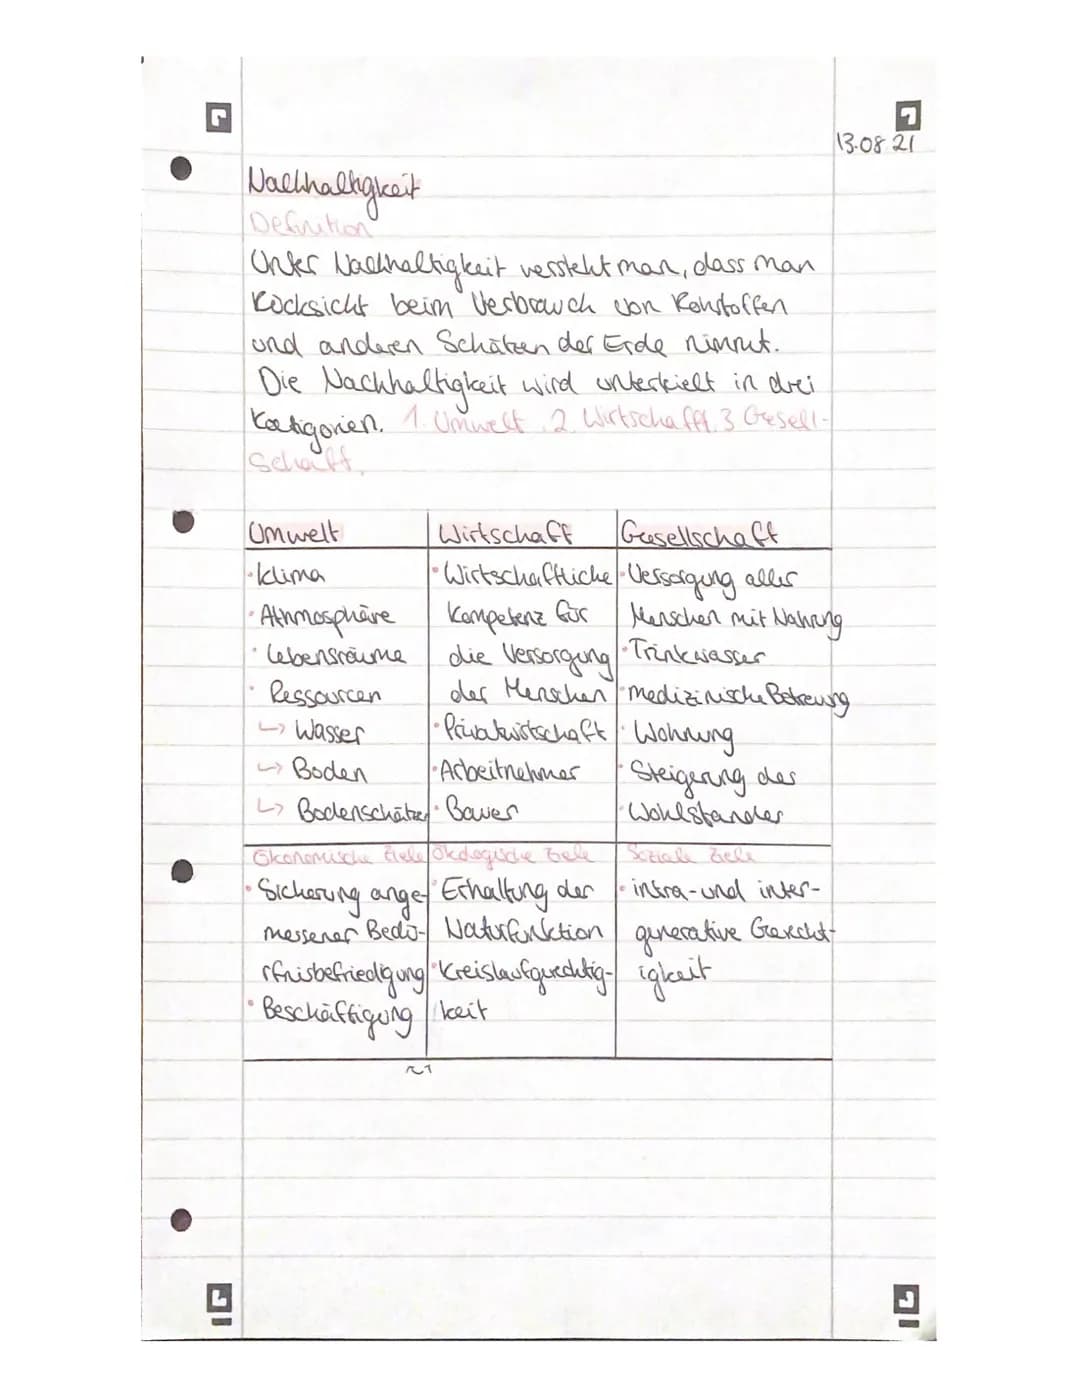 13.08 21
Nachhaltigkeit
Definition
Unter Nachhaltigkeit versteht man, dass man
Rücksicht beim Verbrauch von Rohstoffen
und anderen Schätzen der Erde nimmt.
Die Nachhaltigkeit wird unterteielt in drei
Kategorien. 1. Umwelt. 2. Wirtschafft. 3 Gesell-
schaft.
Umwelt Wirtschaft Gesellschaft
·Klima ·Wirtschaftliche ·Versorgung aller
·Athmosphäre Kompetenz für Menschen mit Nahrung
·Lebensräume die Versorgung ·Trinkwasser
·Ressourcen der Menschen ·medizinische Betreuung
↳ Wasser ·Privatwirtschaft ·Wohnung
↳ Boden ·Arbeitnehmer ·Steigerung des
↳ Bodenschätze ·Bauer ·Wohlstandes
Ökonomische Ziele Ökologische Ziele Soziale Ziele
·Sicherung ange- ·Erhaltung der ·intra-und inter-
messener Bedü- Naturfunktion generative Gerecht-
rfnisbefriedigung ·Kreislaufgerechtig- igkeit
·Beschäftigung keit